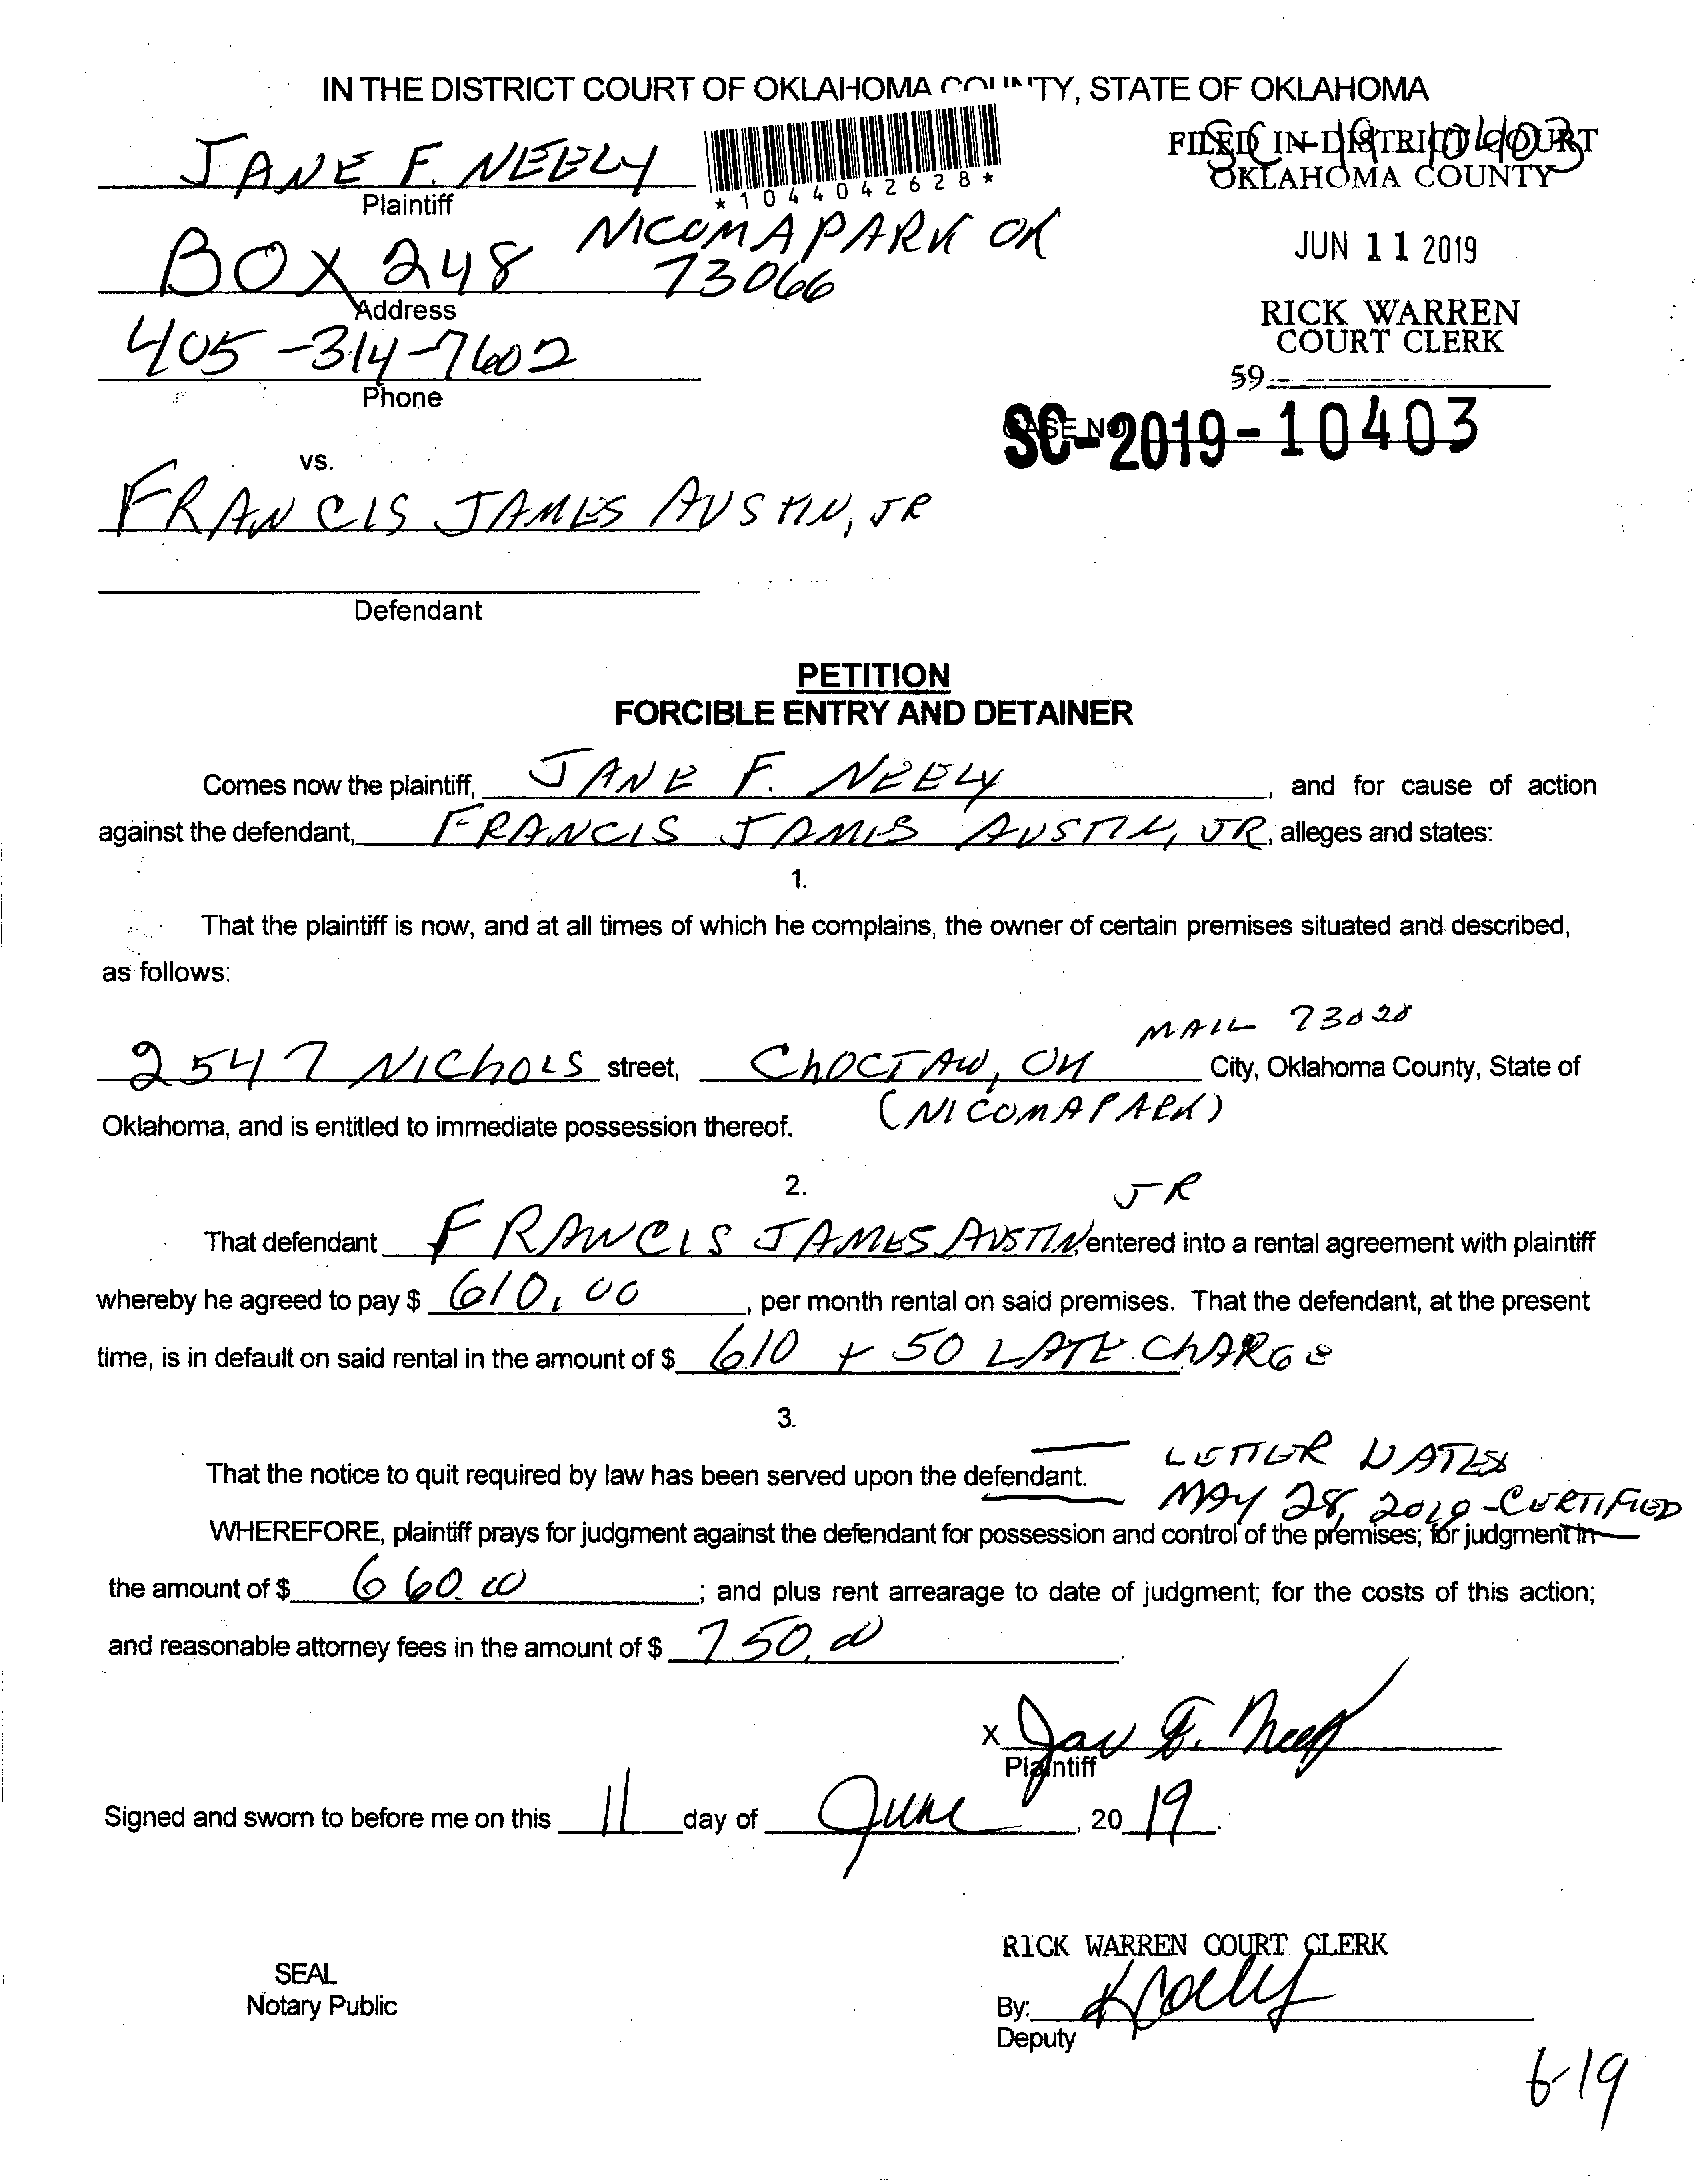 IN THE DISTRICT COURT OF OKLAHOMA COUNTY, STATE OF OKLAHOMA
FILED IN DISTRICT COURT
OKLAHOMA COUNTY
SC-19-10403
JANE F. NEELY
Plaintiff
*1044042628*
BOX 248 NICOMAPARK OK
73066
Address
JUN 11 2019
RICK WARREN
COURT CLERK
405-314-7602
Phone
59
CASE NO
SC-2019-10403
vs.
FRANCIS JAMES AUSTIN, JR
Defendant
PETITION
FORCIBLE ENTRY AND DETAINER
Comes now the plaintiff, JANE F. NEELY, and for cause of action
against the defendant, FRANCIS JAMES AUSTIN, JR, alleges and states:
1.
That the plaintiff is now, and at all times of which he complains, the owner of certain premises situated and described,
as follows:
MAIL 73020
2547 NICHOLS street, CHOCTAW, OK City, Oklahoma County, State of
(NICOMAPARK)
Oklahoma, and is entitled to immediate possession thereof.
2.
JR
That defendant FRANCIS JAMES AUSTIN, entered into a rental agreement with plaintiff
whereby he agreed to pay $ 610.00, per month rental on said premises. That the defendant, at the present
time, is in default on said rental in the amount of $ 610 + 50 LATE CHARGE
3.
That the notice to quit required by law has been served upon the defendant. LETTER DATED
MAY 28, 2019 - CERTIFIED
WHEREFORE, plaintiff prays for judgment against the defendant for possession and control of the premises; for judgment in
the amount of $ 660.00; and plus rent arrearage to date of judgment; for the costs of this action;
and reasonable attorney fees in the amount of $ 750.00.
X Jane F. Neely
Plaintiff
Signed and sworn to before me on this 11 day of June, 2019.
RICK WARREN COURT CLERK
SEAL
Notary Public
By:
Deputy
6-19